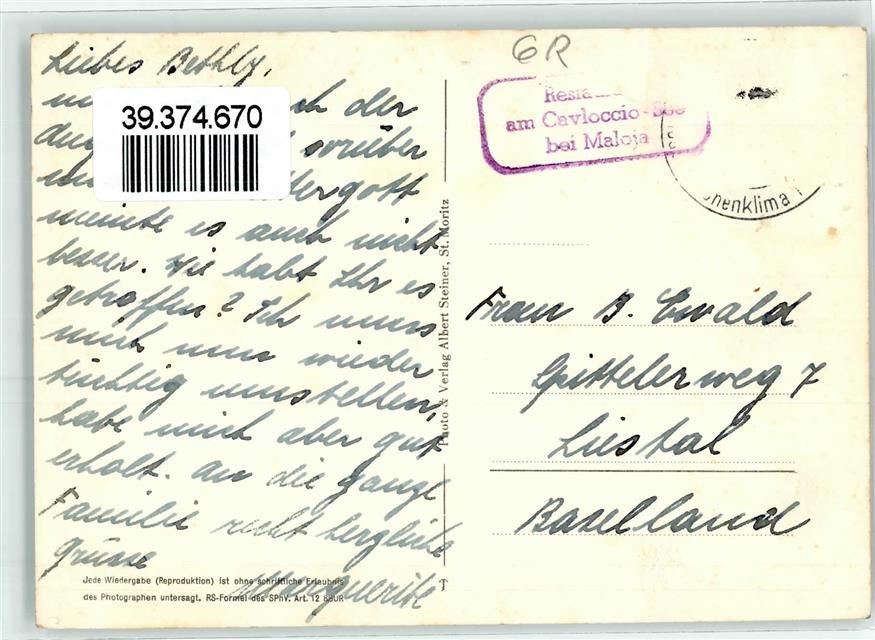 Liebes Bethly,
der
39.374.670
vorüber
meinte es auch nicht
besser. Wie habt Ihr es
getroffen? Ich muss
mich nun wieder
tüchtig umstellen,
habe mich aber gut
erholt. An die ganze
Familie recht herzliche
Grüsse
Marguerite
Jede Wiedergabe (Reproduktion) ist ohne schriftliche Erlaubnis
des Photographen untersagt. RS-Formel des SPhV. Art. 12 BBUR
Photo & Verlag Albert Steiner, St. Moritz
GR
am Cavloccio-See
bei Maloja
henklima
Frau B. Ewald
Spittelerweg 7
Liestal
Baselland